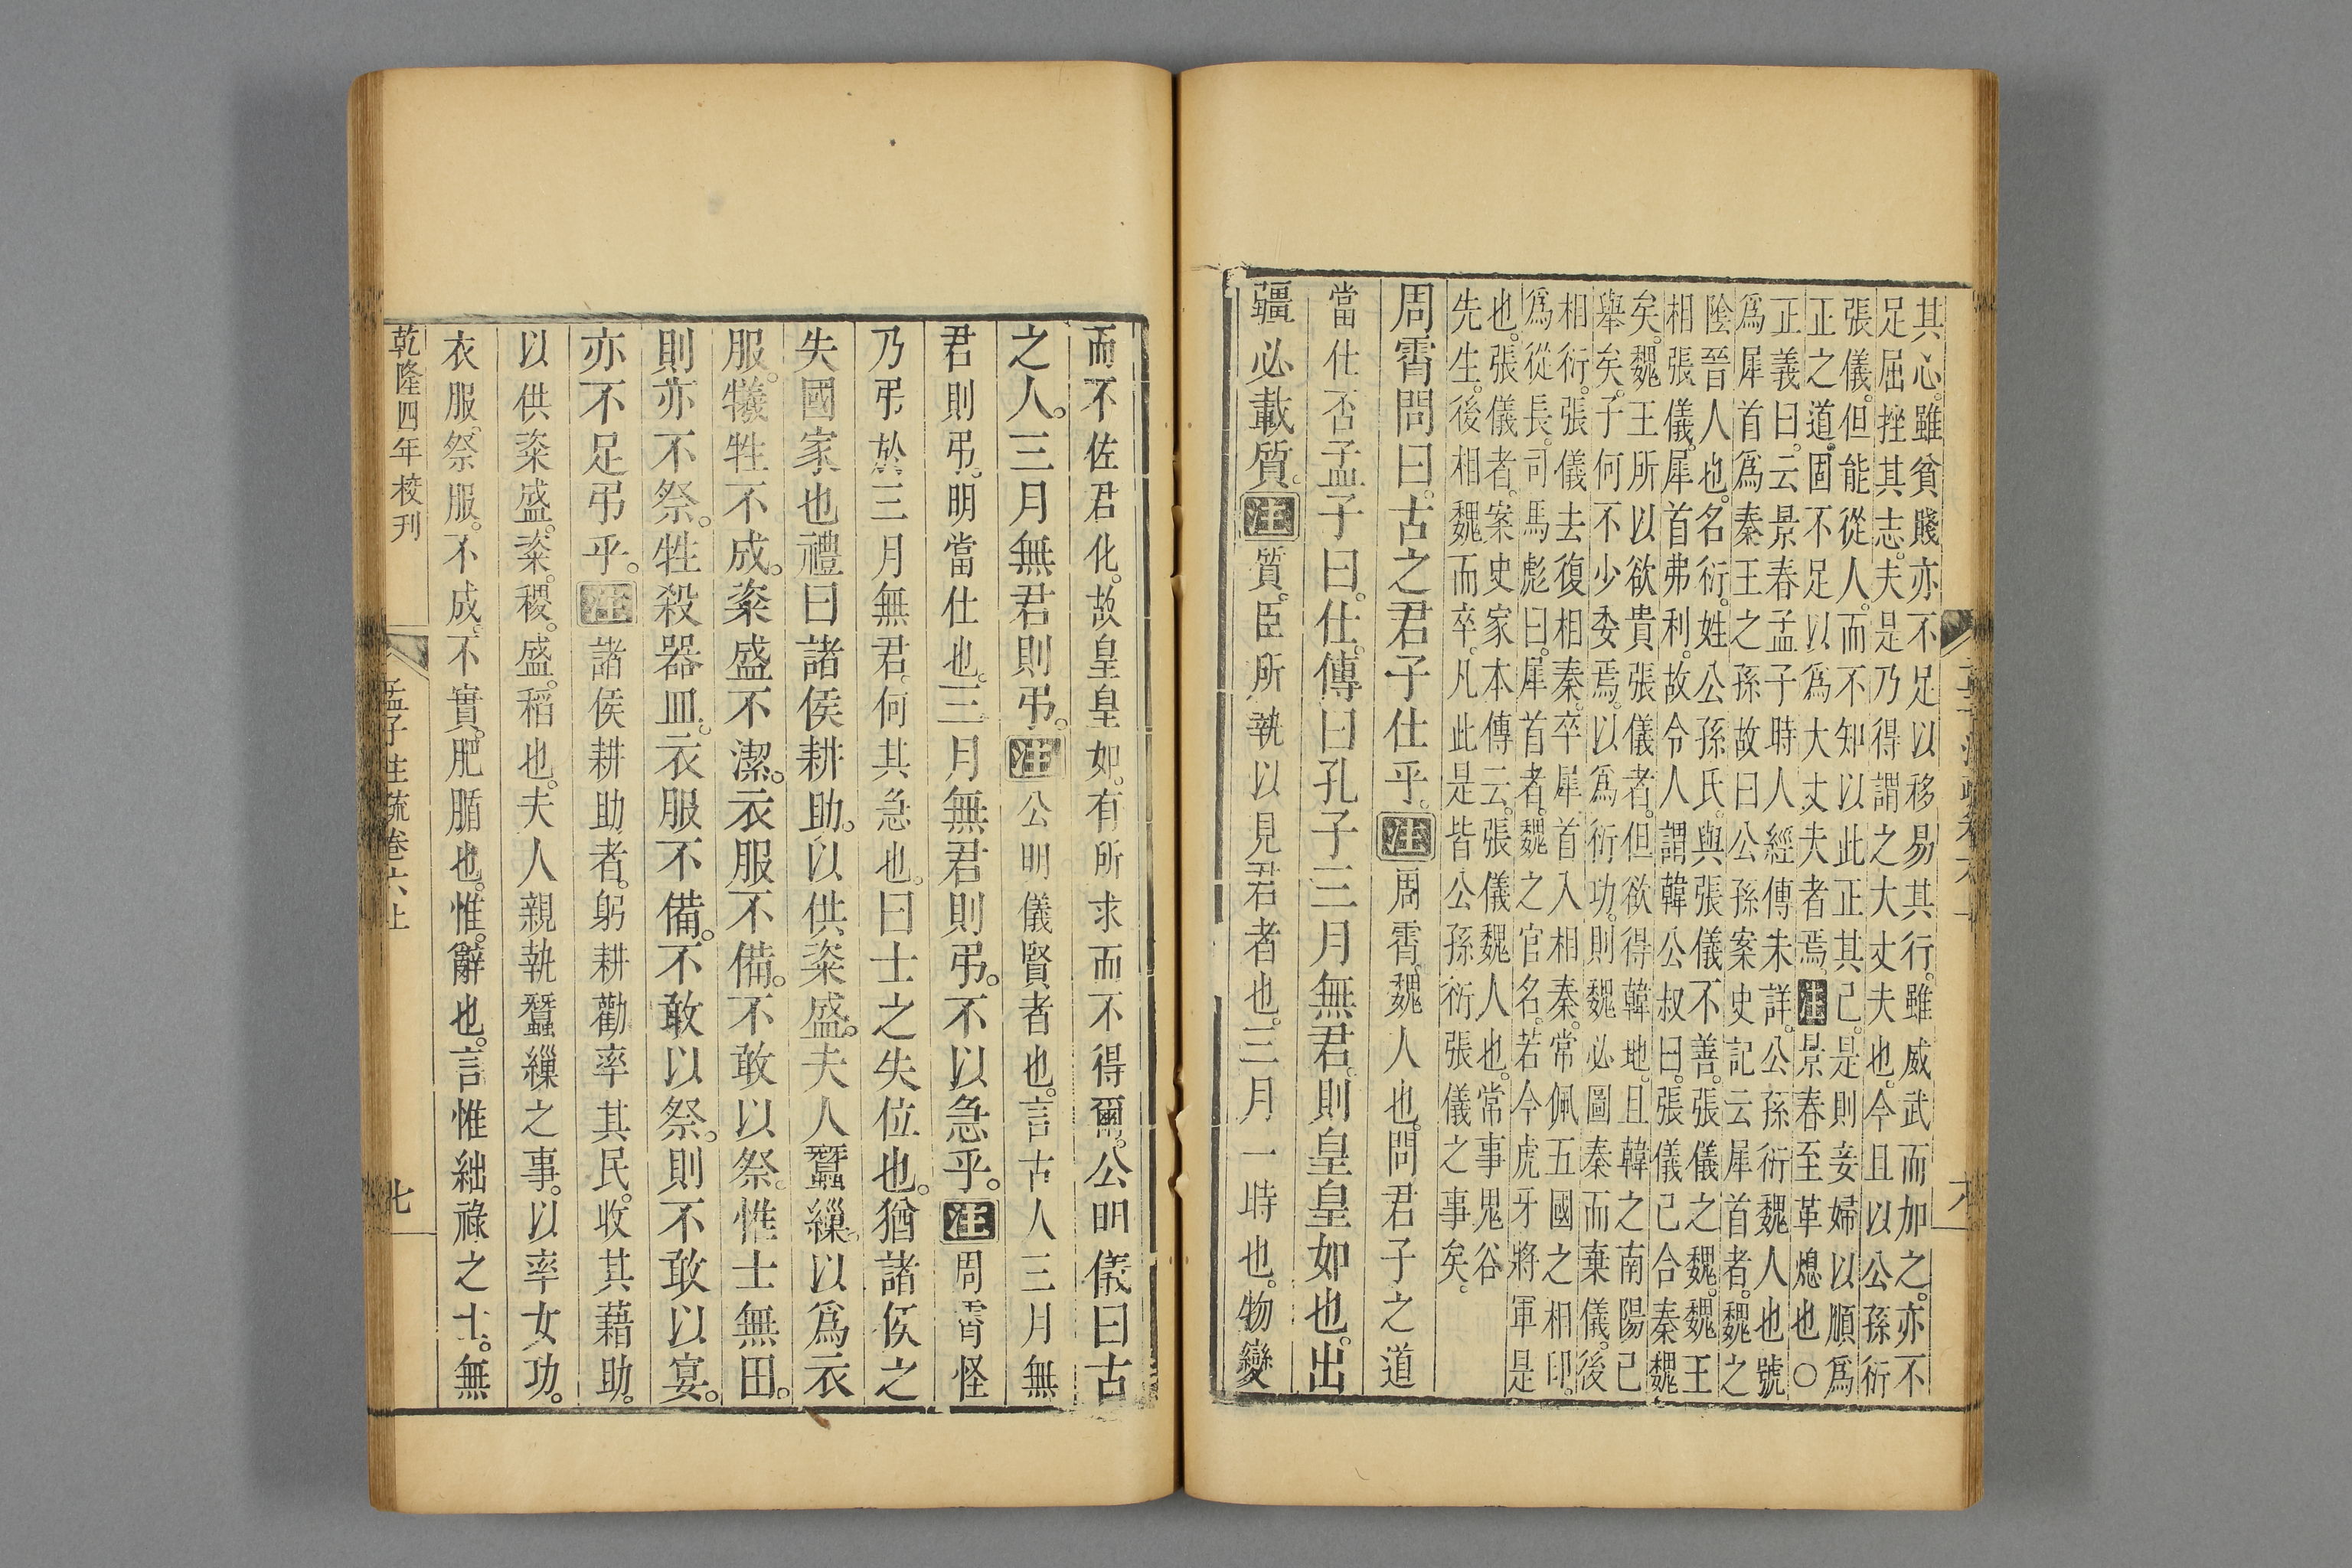 其心。雖貧賤亦不足以移易其行。雖威武而加之。亦不
足屈挫其志。夫是乃得謂之大丈夫也。今且以公孫衍
張儀。但能從人。而不知以此正其己。是則妾婦以順爲
正之道。固不足以爲大丈夫者焉。注景春至革熄也○
正義曰。云景春孟子時人。經傳未詳。公孫衍魏人也號
爲犀首爲秦王之孫故曰公孫案史記云犀首者。魏之
陰晉人也。名衍。姓公孫氏。與張儀不善。張儀之魏。魏王
相張儀。犀首弗利。故令人謂韓公叔曰。張儀已合秦魏
矣。魏王所以欲貴張儀者。但欲得韓地。且韓之南陽已
舉矣。子何不少委焉。以爲衍功。則魏必圖秦而棄儀。後
相衍。張儀去復相秦。卒犀首入相秦。常佩五國之相印。
爲從長。司馬彪曰。犀首者。魏之官名。若今虎牙將軍是
也。張儀者。案史家本傳云。張儀魏人也。常事鬼谷
先生。後相魏而卒。凡此是皆公孫衍張儀之事矣。
周霄問曰。古之君子仕乎。注周霄。魏人也。問君子之道
當仕否孟子曰。仕。傳曰孔子三月無君。則皇皇如也。出
疆必載質。注質。臣所執以見君者也。三月一時也。物變
而不佐君化。故皇皇如。有所求而不得爾。公明儀曰古
之人。三月無君則弔。注公明儀賢者也。言古人三月無
君則弔。明當仕也。三月無君則弔。不以急乎。注周霄怪
乃弔於三月無君。何其急也。曰士之失位也。猶諸侯之
失國家也禮曰諸侯耕助。以供粢盛。夫人蠶繅。以爲衣
服。犧牲不成。粢盛不潔。衣服不備。不敢以祭。惟士無田。
則亦不祭。牲殺器皿。衣服不備。不敢以祭。則不敢以宴。
亦不足弔乎。注諸侯耕助者。躬耕勸率其民。收其藉助。
以供粢盛。粢。稷。盛。稻也。夫人親執蠶繅之事。以率女功。
衣服。祭服。不成。不實。肥腯也。惟。辭也。言惟絀祿之士。無
乾隆四年校刊
孟子注疏卷六上
七